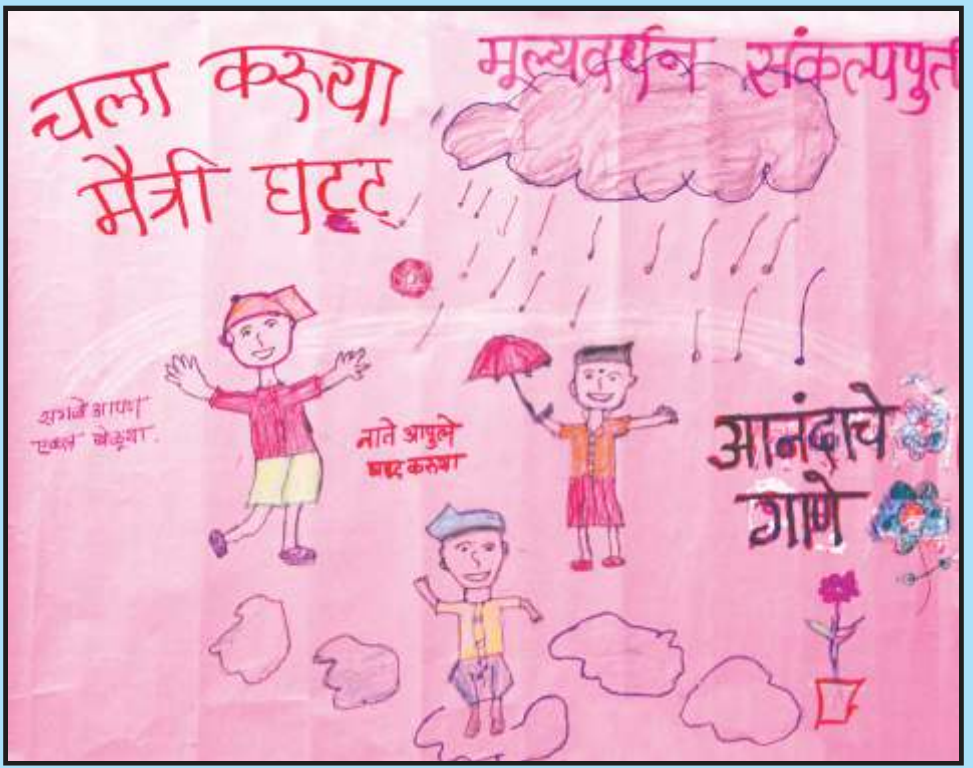 चला करूया
मैत्री घट्ट
मूल्यवर्धन संकल्पपूर्त
सगळे आपण
एकत्र खेळूया.
नाते आपुले
घट्ट करूया
आनंदाचे
गाणे